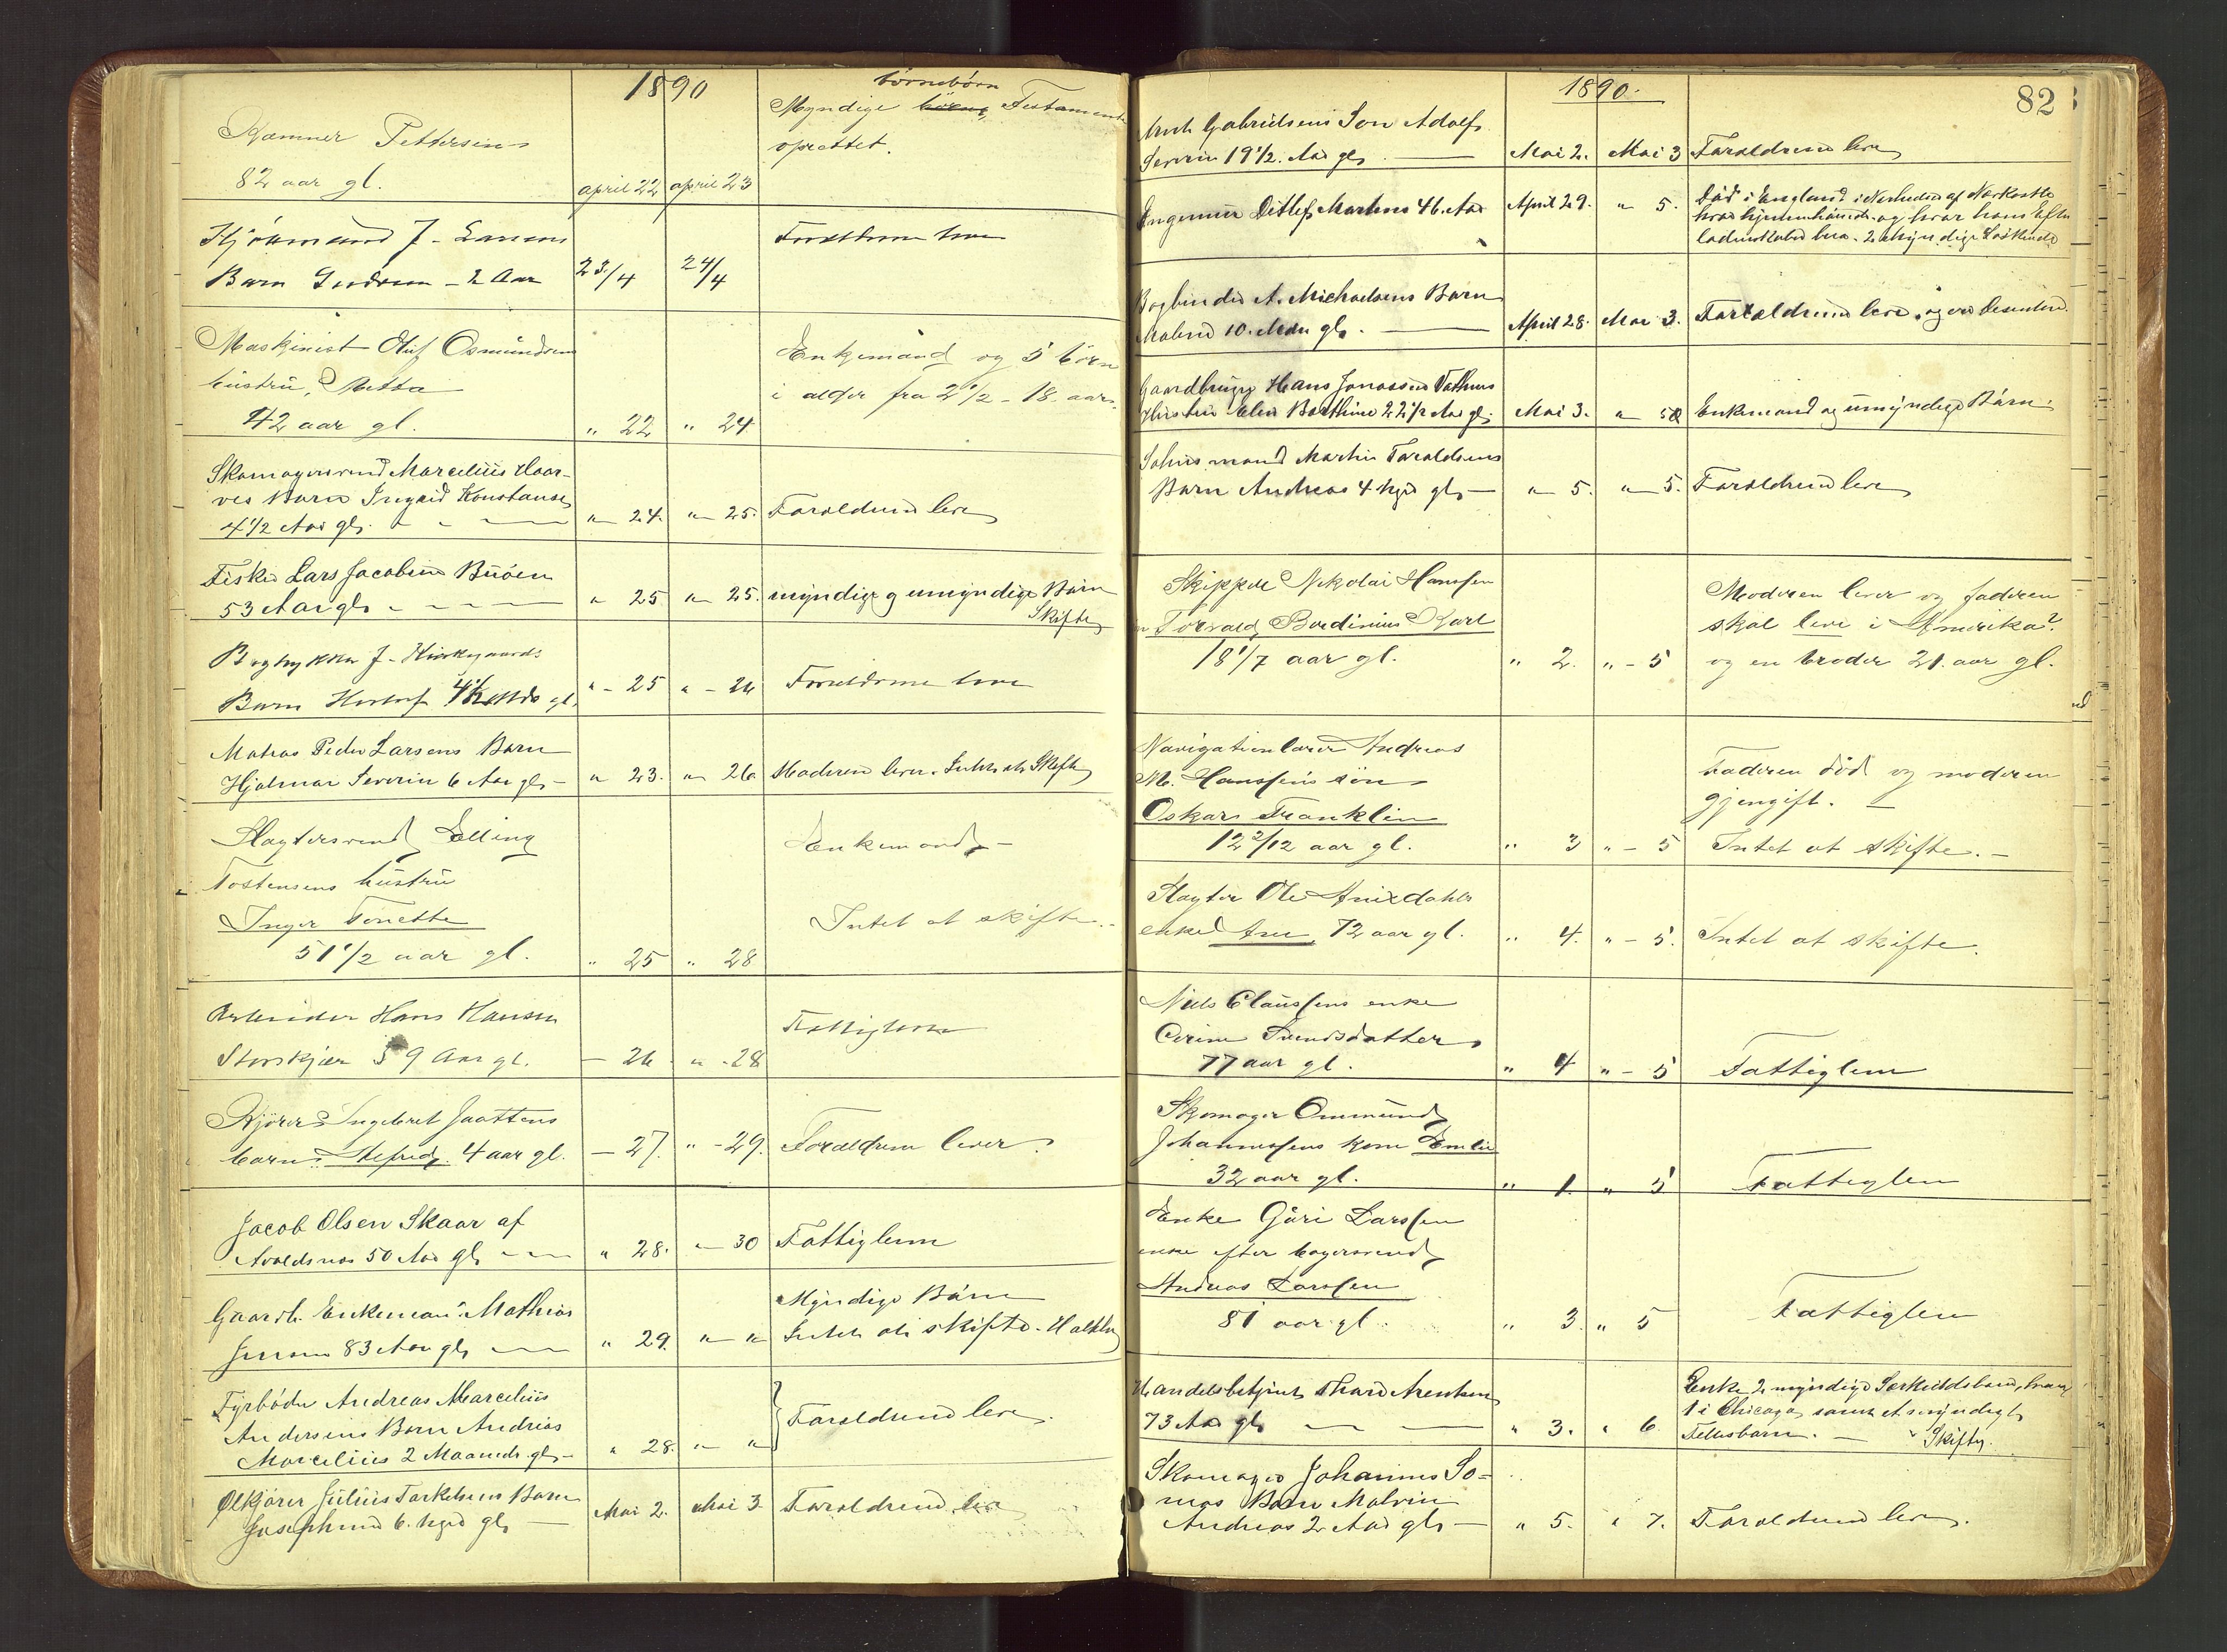 1890
børnebørn
Myndige Testament
oprettet.
Kæmner Pettersen
82 aar gl. april 22 april 23
J. Larsens Forældrene leve
Barn Gudrun - 2 Aar 23/4 24/4
Maskinist Oluf Osmundsens
hustru, Enkemand og 5 børn
42 aar gl. " 22 " 24 i alder fra 2 1/2 - 18 aar.
Skomagersvend Marcelius Haar-
ves Barn Ingrid Konstanse
4 1/2 Aar gl. " 24. " 25. Forældrene leve
Fisker Lars Jacobsen Buøen
53 Aar gl. " 25 " 25. myndige og umyndige Børn
Skifte
J. Kirkegaards
Barn 4 gl. " - 25 " - 26 Forældrene leve
Matros Peder Larsens Barn
Hjalmar Severin 6 Aar gl. " 23. " 26 Moderen lever. Intet at Skifte
Slagtersvend Elling Enkemand -
Tostensens hustru
Inger Tonette Intet at skifte.
51 1/2 aar gl. " 25 " 28
Arbeider Hans Hansen Fattiglem
Storskjær 59 Aar gl. - 26 " - 28
Kjører Ingebret Jaattens
barn 4 aar gl. - 27. " - 29. Forældrene lever
Jacob Olsen Skaar af
Avaldsnes 50 Aar gl. " 28. " 30 Fattiglem
Gaardb. Enkemand Mathias Myndige Børn
Jensen 83 Aar gl. " 29. " " Intet at skifte.
Fyrbøder Andreas Marcelius
Andersens Barn Andreas Forældrene leve.
Marcelius 2 Maaneder gl. " 28. " "
Ølkjører Julius Torkelsens Barn
Josephine 6. gl. Mai 2. Mai 3. Forældrene leve
1890. 82
Gabrielsens Søn Adolf
Severin 19 1/2. Aar gl. Mai 2. Mai 3 Forældrene leve
Ingeniør Ditlef Martens 46. Aar April 29. " 5. Død i England i Nærheden af
hvor og hvor hans Efter
ladenskaber bero. 2 myndige Søskende
Bogbinder A. Michaelsens Barn
10. gl. April 28. Mai 3. Forældrene leve og
Gaardbruger Hans Jonassen
Hustru Elen Berthine 22 1/2 Aar gl. Mai 3. " 5 Enkemand og umyndige Børn.
Martin Toraldsens
Barn Andreas 4 gl. " 5. " 5. Forældrene leve
Skipper Nikolai Hanssen Moderen lever og faderen
Torvald Berdinius Karl skal leve i Amerika?
18 1/7 aar gl. " 2. " - 5 og en broder 21 aar gl.
Navigationlærer Andreas
M. Hanssens søn Faderen død og moderen
Oskar Franklin gjengift. -
12 2/12 aar gl. " 3 " - 5 Intet at skifte. -
Slagter Ole
enke Ane, 72 aar gl. " 4. " - 5. Intet at skifte.
Niels Claussens enke
Serine Svendsdatter
77 aar gl. " 4 " - 5 Fattiglem
Skomager Ommund
Johannessens kone Emlie
32 aar gl. " 1 " 5 Fattiglem
Enke Guri Larssen
enke efter bagersvend
Andreas Larssen
81 aar gl. " 3. " 5 Fattiglem
Handelsbetjent Thore Arentsen Enke 2 myndige Særkuldsbørn, hvoraf
73 Aar gl. " 3. " 6. 1 i Chicago samt et umyndigt
Fellesbarn. - Skifte.
Skomager Johannes So-
mes Barn Malvin
Andreas 2 Aar gl. " 5. " 7. Forældrene leve.